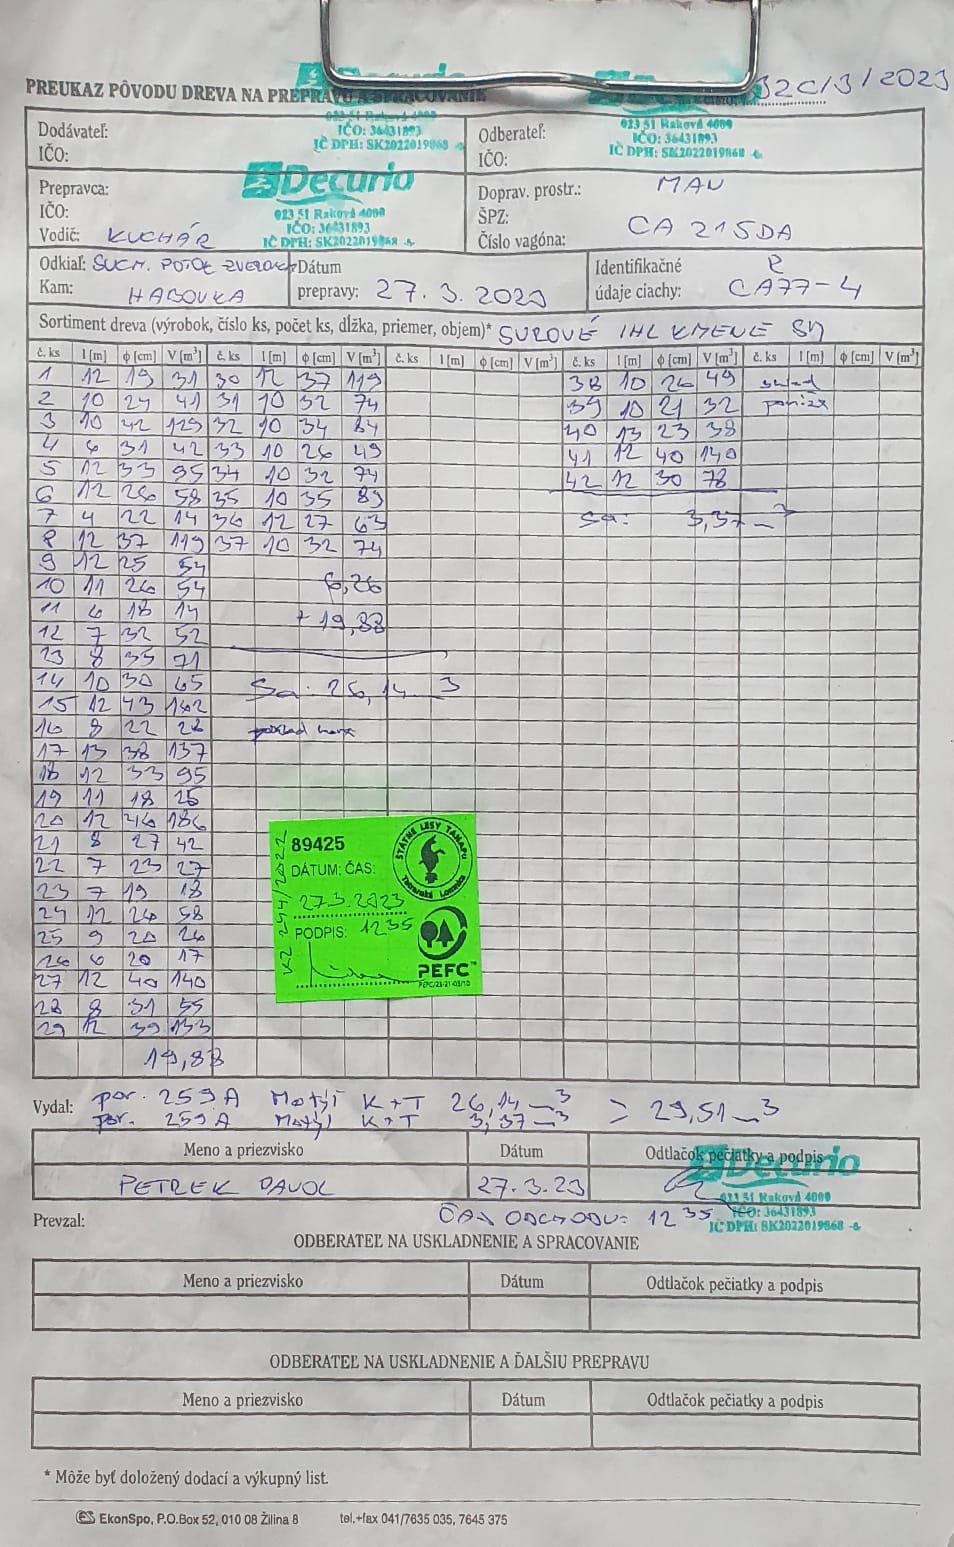 PREUKAZ PÔVODU DREVA NA PREPRAVU A SPRACOVANIE 32C/3/2023
Dodávateľ: Odberateľ:
IČO: IČO:
Decurio
023 51 Raková 4000 023 51 Raková 4000
IČO: 36431893 IČO: 36431893
IČ DPH: SK2022019868 IČ DPH: SK2022019868
Prepravca: Decurio Doprav. prostr.: MAN
IČO: 023 51 Raková 4000 ŠPZ: CA 215DA
IČO: 36431893
Vodič: KUCHÁR IČ DPH: SK2022019868 Číslo vagóna:
Odkiaľ: SUCH. POTOK Dátum Identifikačné R
Kam: HABOVKA prepravy: 27.3.2023 údaje ciachy: CA77-4
Sortiment dreva (výrobok, číslo ks, počet ks, dĺžka, priemer, objem)* SUROVÉ IHL KMENE SM
č. ks l [m] ϕ [cm] V [m³] č. ks l [m] ϕ [cm] V [m³] č. ks l [m] ϕ [cm] V [m³] č. ks l [m] ϕ [cm] V [m³] č. ks l [m] ϕ [cm] V [m³]
1 12 19 31 30 12 37 119 38 10 26 49 sklad
2 10 24 41 31 10 32 74 39 10 21 32
3 10 42 129 32 10 34 84 40 13 23 38
4 6 31 42 33 10 26 49 41 12 40 140
5 12 33 95 34 10 32 74 42 12 30 78
6 12 26 58 35 10 35 89
7 4 22 14 36 12 27 63 Sa: 3,37 m³
8 12 37 119 37 10 32 74
9 12 25 54
10 11 26 54 6,26
11 6 18 14 + 19,88
12 7 32 52
13 8 35 71
14 10 30 65 Sa: 26,14 m³
15 12 43 162
16 8 22 28
17 13 38 137
18 12 33 95
19 11 18 25
20 12 46 186
21 8 27 42
22 7 23 27
23 7 19 18
24 12 26 58
25 9 20 26
26 6 20 17
27 12 40 140
28 8 31 55
29 12 39 133
19,88
89425
DÁTUM: ČAS:
27.3.2023
PODPIS: 1235
ŠTÁTNE LESY TANAPU
Tatranská Lomnica
PEFC™
Vydal: por. 259 A Motýl K+T 26,14 m³ > 29,51 m³
por. 259 A Motýl K+T 3,37 m³
Meno a priezvisko Dátum Odtlačok pečiatky a podpis
PETREK PAVOL 27.3.23
Decurio
023 51 Raková 4000
IČO: 36431893
IČ DPH: SK2022019868
Prevzal: ČAS ODCHODU: 12 35
ODBERATEĽ NA USKLADNENIE A SPRACOVANIE
Meno a priezvisko Dátum Odtlačok pečiatky a podpis
ODBERATEĽ NA USKLADNENIE A ĎALŠIU PREPRAVU
Meno a priezvisko Dátum Odtlačok pečiatky a podpis
* Môže byť doložený dodací a výkupný list.
EkonSpo, P.O.Box 52, 010 08 Žilina 8 tel.+fax 041/7635 035, 7645 375